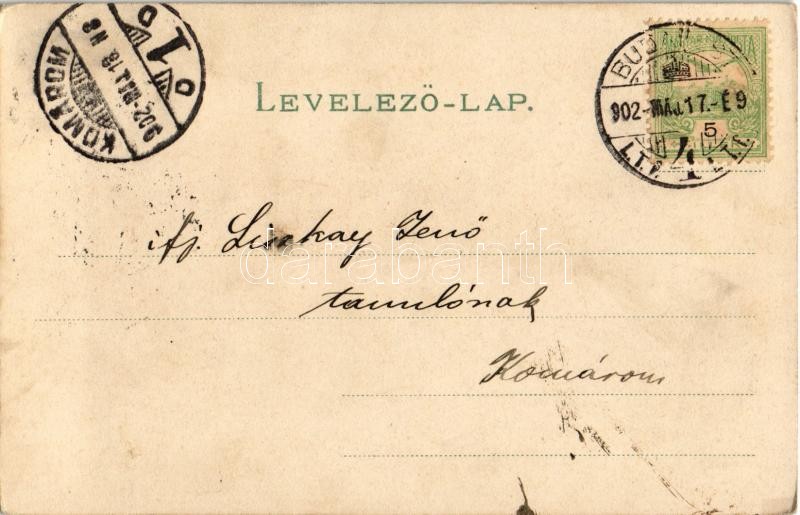 KOMÁROM
902.MÁJ.18. N8
LEVELEZŐ-LAP.
902-MÁJ.17.-É9
5
ifj. Liszkay Jenő
tanulónak
Komárom
darabanth